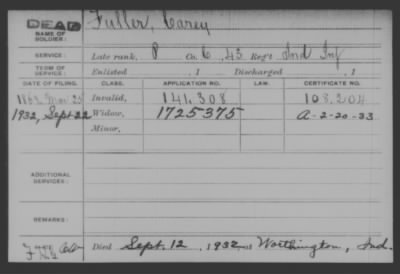 DEAD Fuller, Carey
NAME OF SOLDIER:
SERVICE: Late rank, P Co. C, 43 Reg't Ind Inf
TERM OF SERVICE: Enlisted , 1 Discharged , 1
DATE OF FILING. CLASS. APPLICATION NO. LAW. CERTIFICATE NO.
Invalid, 141,308 108,204
1932, Sept 22 Widow, 1725375 A-2-20-33
Minor,
ADDITIONAL SERVICES:
REMARKS:
Died Sept. 12, 1932 at Worthington, Ind.